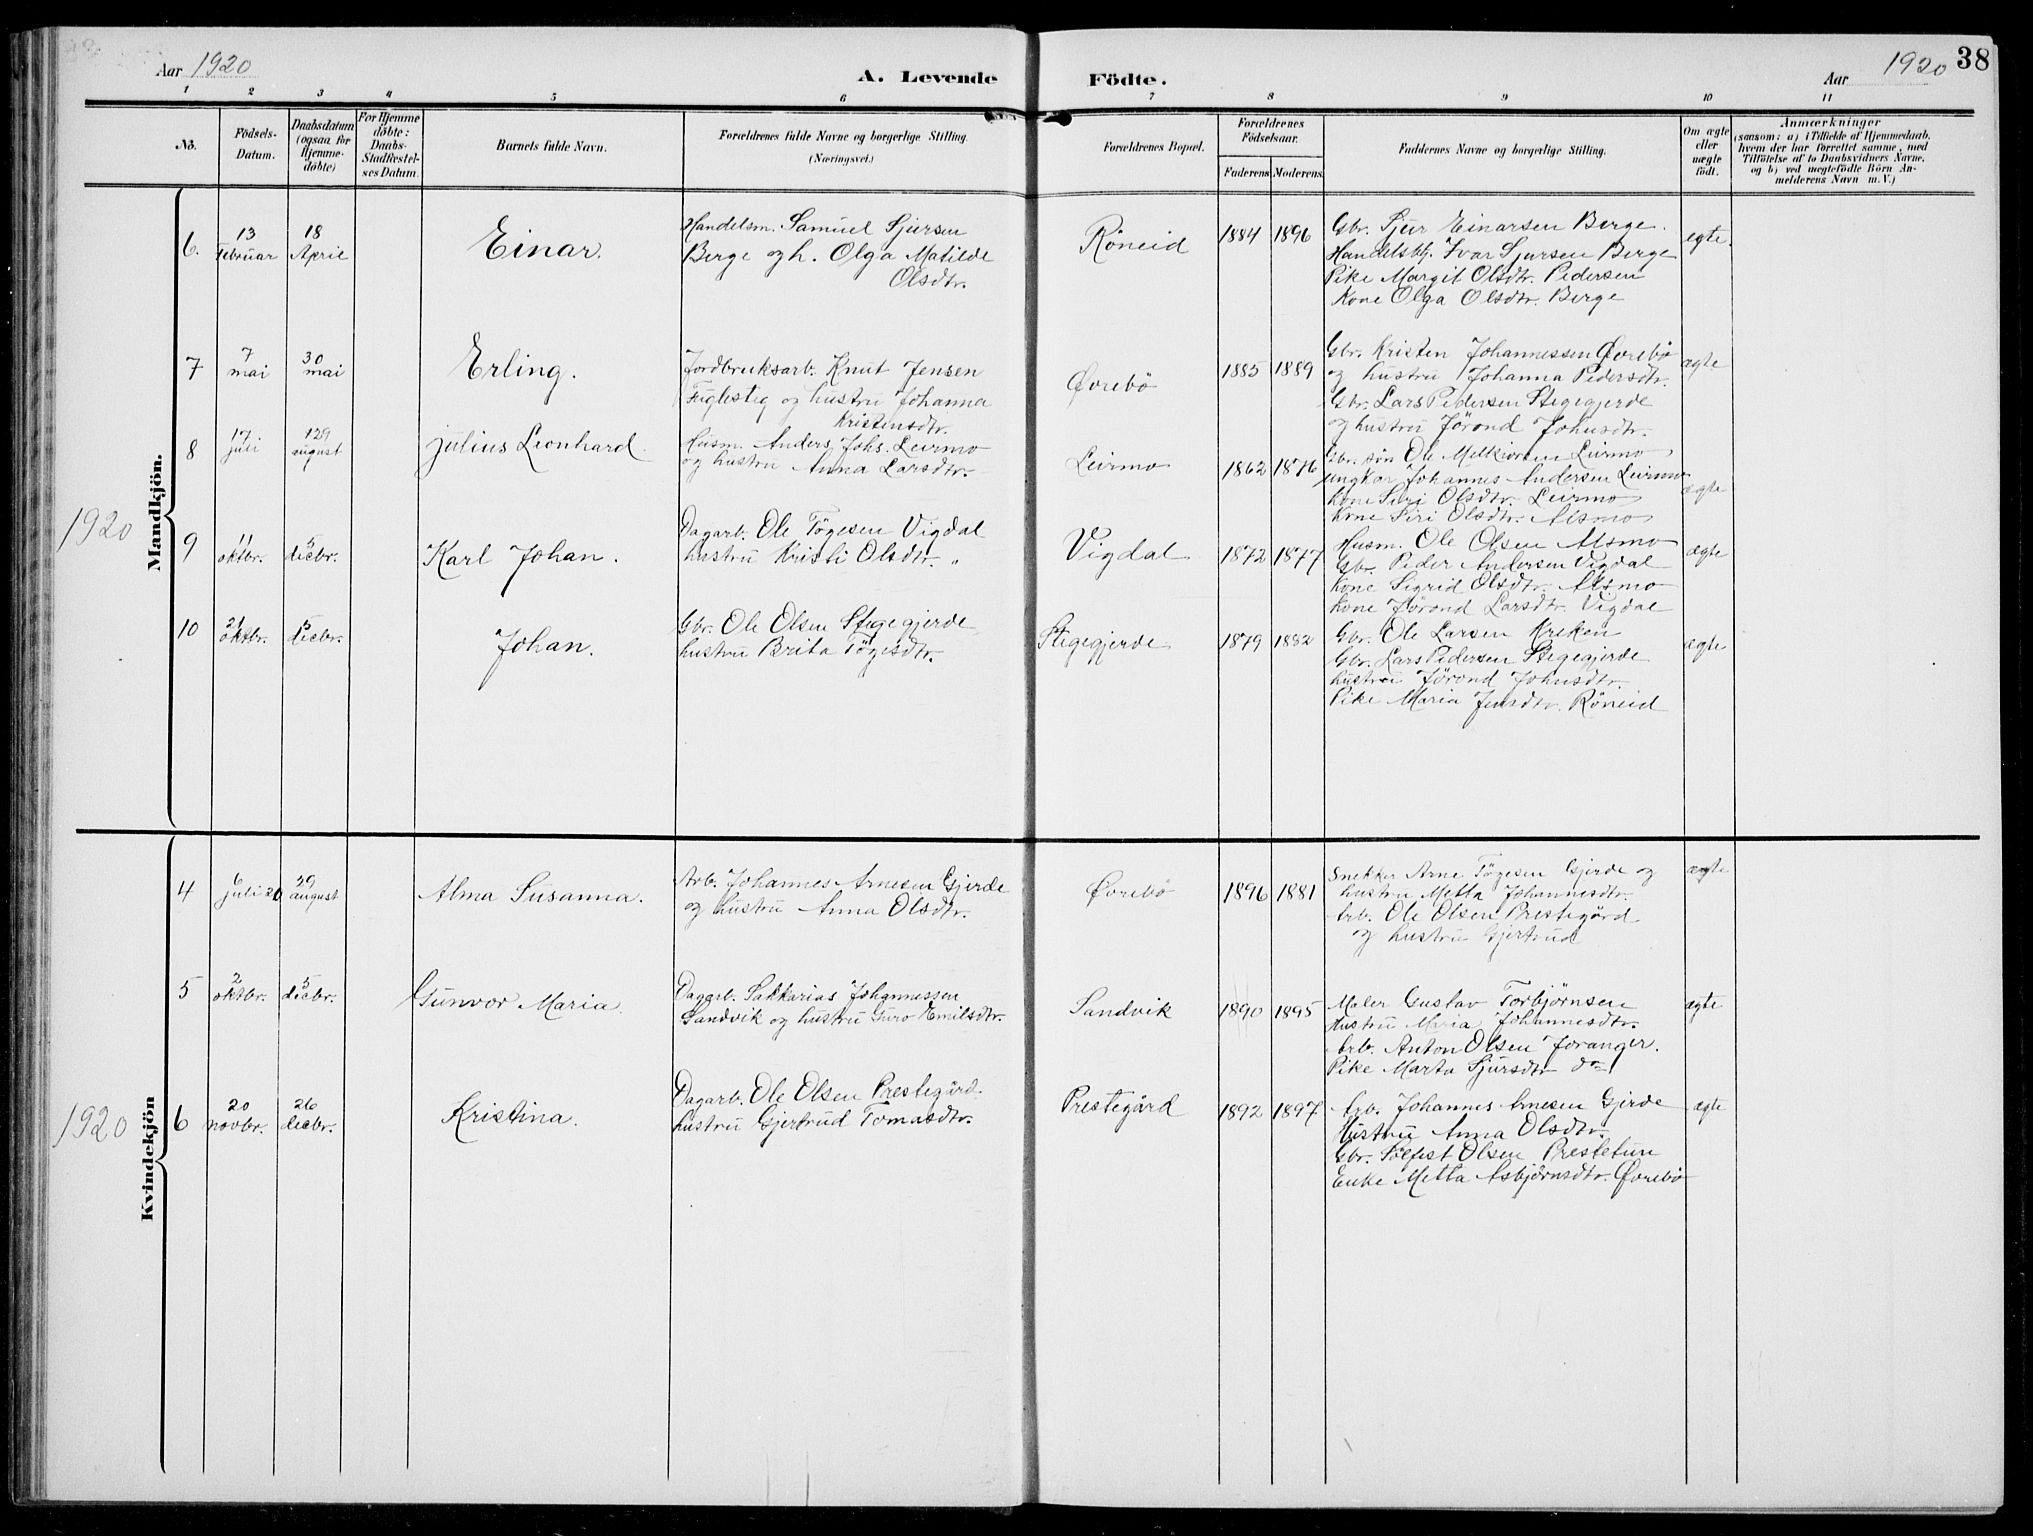 Aar 1920
A. Levende
Födte.
Aar 1920
38
1 2 3 4 5 6 7 8 9 10 11
No.
Födsels-
Datum.
Daabsdatum
(ogsaa for
Hjemme-
döbte)
For Hjemme
döbte:
Daabs-
Stadfæstel-
ses Datum.
Barnets fulde Navn.
Forældrenes fulde Navne og borgerlige Stilling.
(Næringsvei.)
Forældrenes Bopæl.
Forældrenes
Födselsaar.
Faderens
Moderens
Faddernes Navne og borgerlige Stilling.
Om ægte
eller
uægte
födt.
Anmærkninger
(saasom: a) i Tilfælde af Hjemmedaab,
hvem der har forrettet samme, med
Tilföielse af to Daabsvidners Navne,
og b) ved uægtefödte Börn An-
melderens Navn m. V.)
1920
Mandkjön.
6.
13
Februar
18
April
Einar.
Handelsm. Samuel Sjursen
Berge og h. Olga Matilde
Olsdtr.
Röneid
1884
1896
Gbr. Sjur Einarsen Berge.
Handelsbtj. Ivar Sjursen Berge
Pike Margit Olsdtr. Pedersen
Kone Olga Olsdtr. Berge
egte.
7
7
mai
30
mai
Erling.
Jordbruksarb. Knut Jensen
Fuglesteg og hustru Johanna
Kristensdtr.
Øvrebö
1885
1889
Gbr. Kristen Johannessen Øvrebö
og hustru Johanna Pedersdtr.
Gbr. Lars Pedersen Stegegjerde
og hustru Jörond Johnsdtr.
ægte
8
17
juli
29
august
Julius Leonhard.
Husm. Anders Johs. Leirmo
og hustru Anna Larsdtr.
Leirmo
1862
1876
Gbr. søn Ole Melkiorsen Leirmo,
ungkar Johannes Andersen Leirmo
Kone Siri Olsdtr. Leirmo
Kone Siri Olsdtr. Alsmo
ægte
9
11
oktbr.
5
decbr.
Karl Johan.
Dagarb. Ole Tögesen Vigdal
hustru Kristi Olsdtr. "
Vigdal
1872
1877
Husm. Ole Olsen Alsmo
Gbr. Peder Andersen Vigdal
Kone Sigrid Olsdtr. Alsmo
Kone Jörond Larsdtr. Vigdal
ægte
10
21
oktbr.
5
decbr.
Johan.
Gbr. Ole Olsen Stegegjerde
hustru Brita Tögesdtr.
Stegegjerde
1879
1882
Gbr. Ole Larsen Kreken
Gbr. Lars Pedersen Stegegjerde
hustru Jörond Johnsdtr.
Pike Maria Jensdtr. Röneid
ægte
1920
Kvindekjön
4
6
juli 20
29
august
Alma Susanna.
Arb. Johannes Arnesen Gjerde
og hustru Anna Olsdtr.
Øvrebö
1896
1881
Snekker Arne Tögesen Gjerde og
hustru Metta Johannesdtr.
Arb. Ole Olsen Prestegård
og hustru Gjertrud
ægte
5
2
oktbr.
5
decbr.
Gunvor Maria.
Dagarb. Sakkarias Johannessen
Sandvik og hustru Guro Emilsdtr.
Sandvik
1890
1895
Maler Gustav Torbjørnsen
Hustru Maria Johannesdtr.
Arb. Anton Olsen Joranger.
Pike Marta Sjursdtr do
ægte
6
20
novbr.
26
decbr.
Kristina.
Dagarb. Ole Olsen Prestegård.
hustru Gjertrud Tomasdtr.
Prestegård
1892
1897
Arb. Johannes Arnesen Gjerde
Hustru Anna Olsdtr.
Gbr. Sölfest Olsen Prestetun
Enke Metta Asbjörnsdtr. Øvrebö
ægte